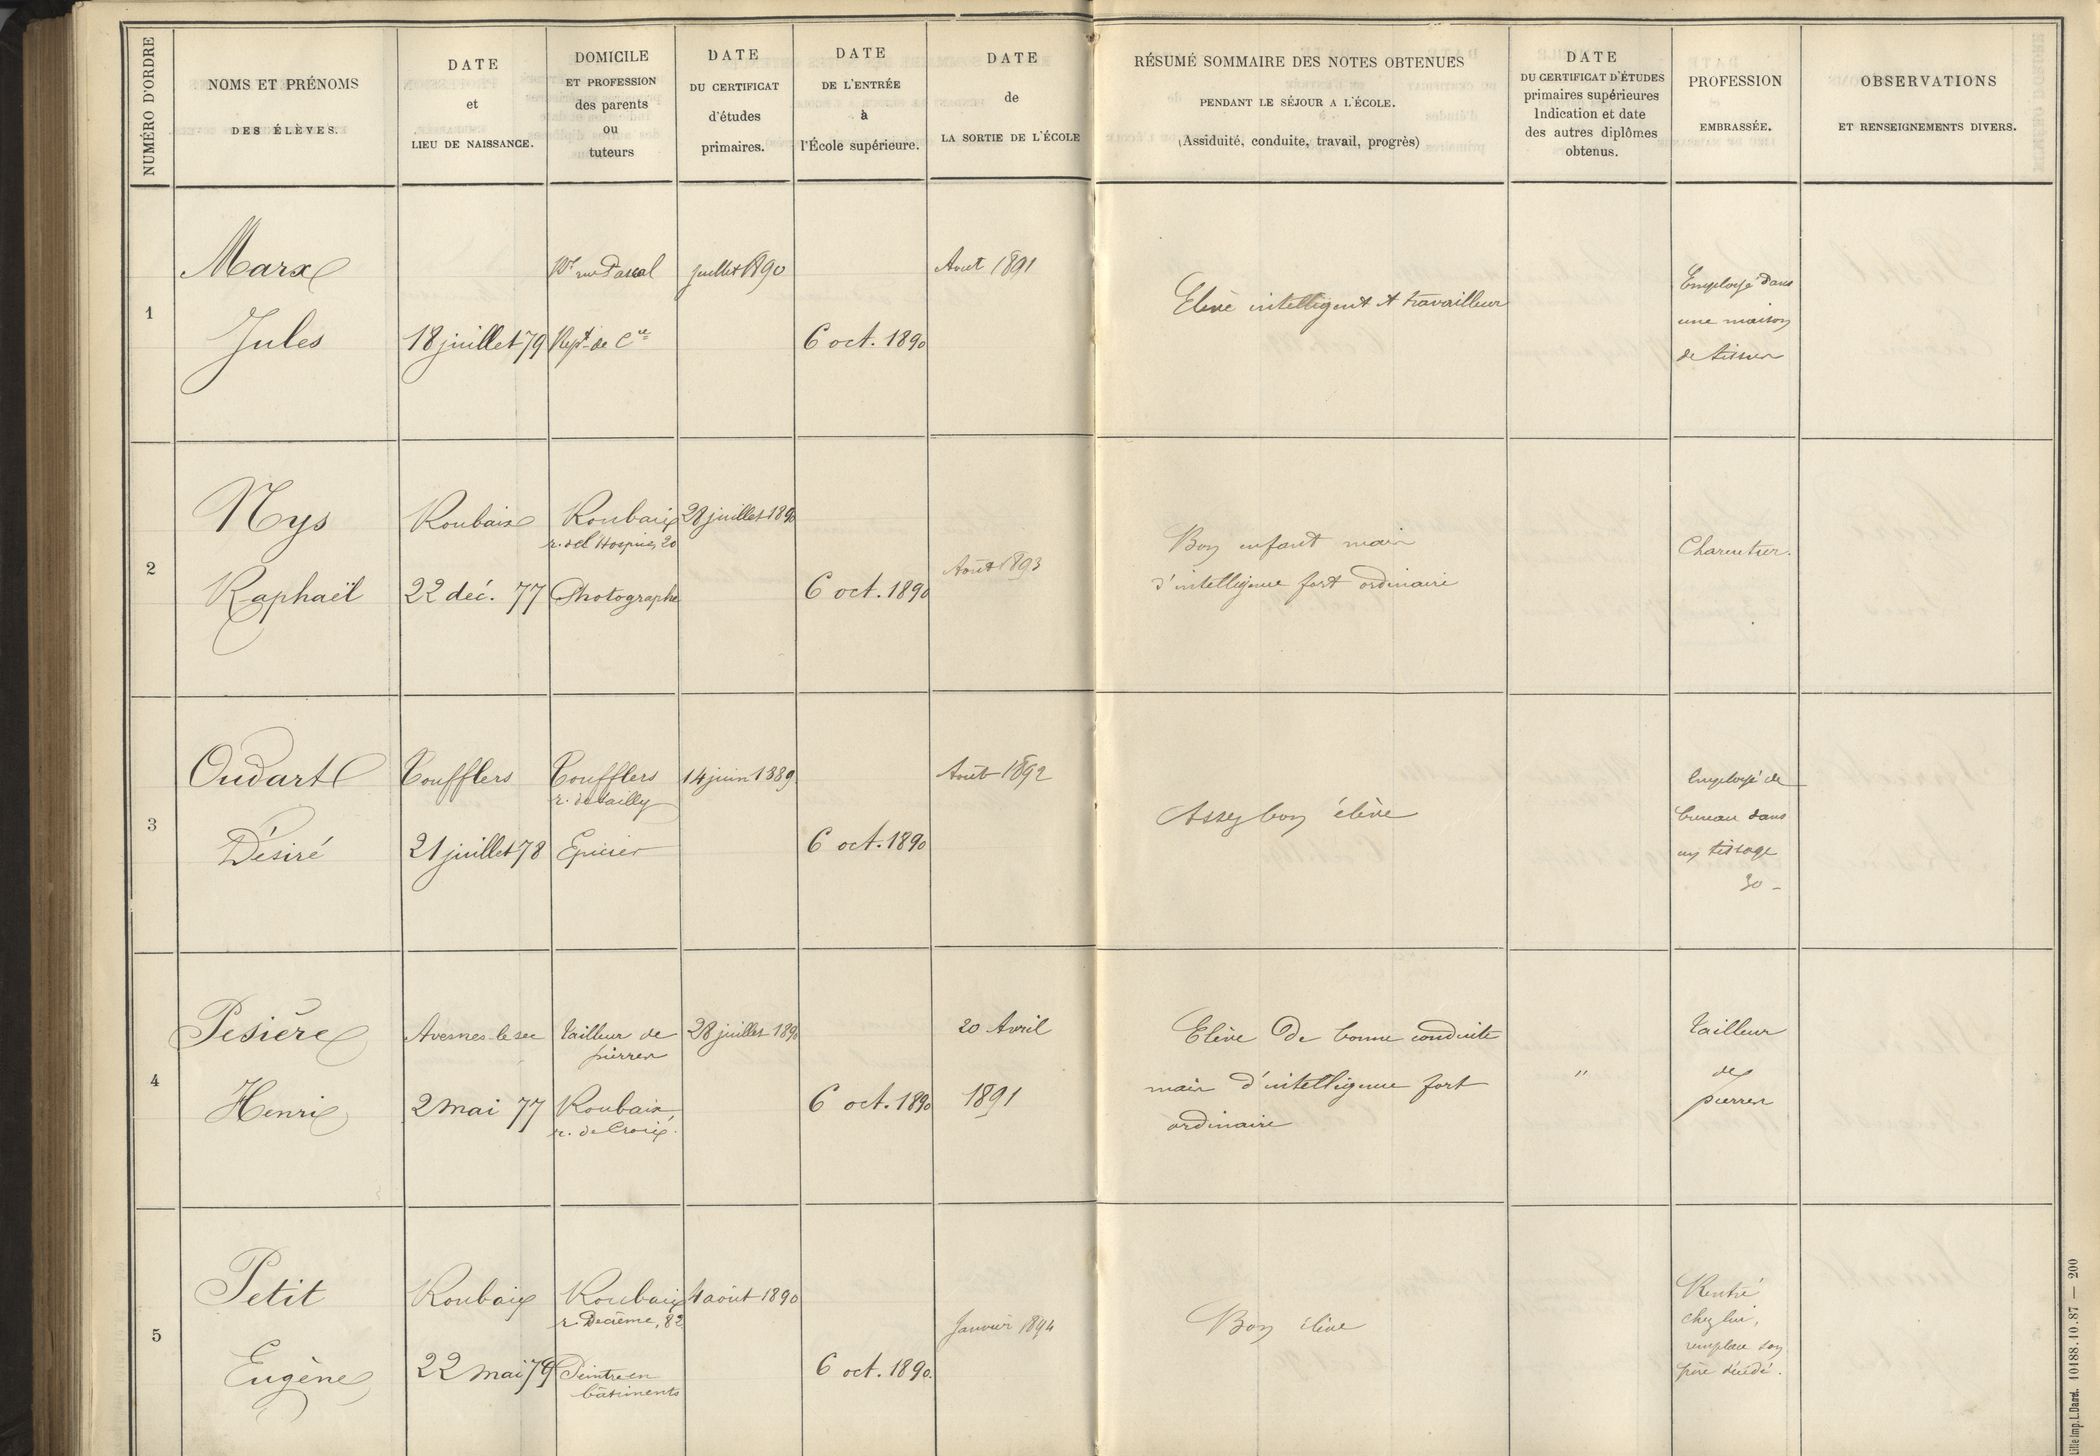 NUMÉRO D'ORDRE
NOMS ET PRÉNOMS
DES ÉLÈVES.
DATE
et
LIEU DE NAISSANCE.
DOMICILE
ET PROFESSION
des parents
ou
tuteurs
DATE
DU CERTIFICAT
d'études
primaires.
DATE
DE L'ENTRÉE
à
l'École supérieure.
DATE
de
LA SORTIE DE L'ÉCOLE
RÉSUMÉ SOMMAIRE DES NOTES OBTENUES
PENDANT LE SÉJOUR A L'ÉCOLE.
(Assiduité, conduite, travail, progrès)
DATE
DU CERTIFICAT D'ÉTUDES
primaires supérieures
Indication et date
des autres diplômes
obtenus.
PROFESSION
EMBRASSÉE.
OBSERVATIONS
ET RENSEIGNEMENTS DIVERS.
1
Marx
Jules
18 juillet 79
rue Pascal
Rept de Cce
juillet 1890
6 oct. 1890
Aout 1891
Elève intelligent et travailleur
Employé dans
une maison
de tissus
2
Nys
Raphaël
Roubaix
22 déc. 77
Roubaix
r. de l'Hospice, 20
Photographe
28 juillet 1890
6 oct. 1890
Août 1893
Bon enfant mais
d'intelligence fort ordinaire
Charcutier.
3
Oudart
Désiré
Toufflers
21 juillet 78
Toufflers
r. de Sailly
Epicier
14 juin 1889
6 oct. 1890
Août 1892
Assez bon élève
Employé de
bureau dans
un tissage
30 -
4
Pesière
Henri
Avesnes-le-sec
2 mai 77
Tailleur de
pierres
Roubaix,
r. de Croix.
28 juillet 1890
6 oct. 1890
20 Avril
1891
Elève de bonne conduite
mais d'intelligence fort
ordinaire
"
Tailleur
de
pierres
5
Petit
Eugène
Roubaix
22 mai 79
Roubaix
r. Decrême, 82
Peintre en
bâtiments
4 août 1890
6 oct. 1890.
Janvier 1894
Bon élève
Rentré
chez lui,
remplace son
père décédé.
Lille Imp. L. Danel. 10188.10.87 — 200